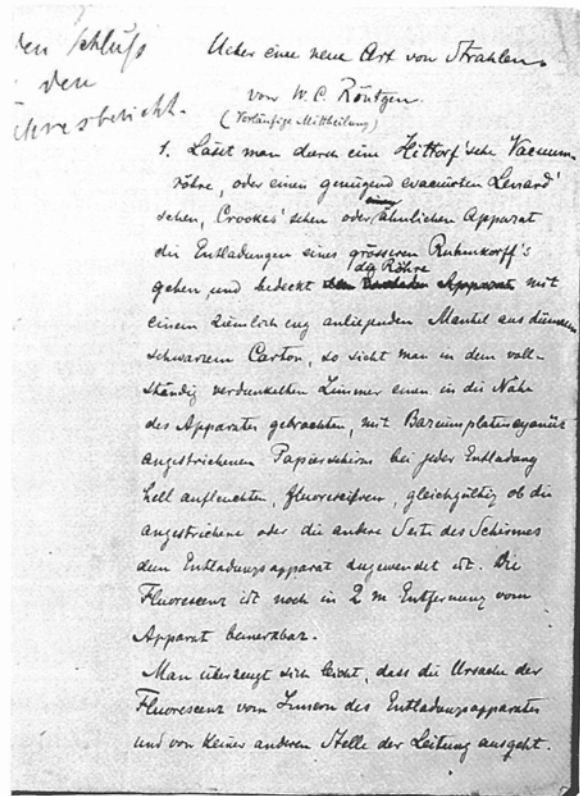 den Schluß
den
Jahresbericht.
Ueber eine neue Art von Strahlen.
von W. C. Röntgen.
(Vorläufige Mittheilung)
1. Lässt man durch eine Hittorf'sche Vacuum-
röhre, oder einen genügend evacuirten Lenard'
schen, Crookes'schen oder ähnlichen Apparat
die Entladungen eines grösseren Ruhmkorff's
gehen, und bedeckt die Röhre mit
einem ziemlich eng anliegenden Mantel aus dünnem
schwarzem Carton, so sieht man in dem voll-
ständig verdunkelten Zimmer einen in die Nähe
des Apparates gebrachten, mit Bariumplatincyanür
angestrichenen Papierschirm bei jeder Entladung
hell aufleuchten, fluoresciren, gleichgültig ob die
angestrichene oder die andere Seite des Schirmes
dem Entladungsapparat zugewendet ist. Die
Fluorescenz ist noch in 2 m Entfernung vom
Apparat bemerkbar.
Man überzeugt sich leicht, dass die Ursache der
Fluorescenz vom Innern des Entladungsapparates
und von keiner anderen Stelle der Leitung ausgeht.